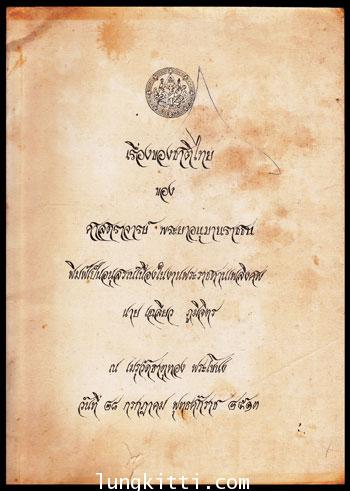 เรื่องของชาติไทย
ของ
ศาสตราจารย์ พระยาอนุมานราชธน
พิมพ์เป็นอนุสรณ์เนื่องในงานพระราชทานเพลิงศพ
นาย เฉลียว ภูมิจิตร
ณ เมรุวัดธาตุทอง พระโขนง
วันที่ ๒๘ กรกฎาคม พุทธศักราช ๒๕๑๓
www.lungkitti.com